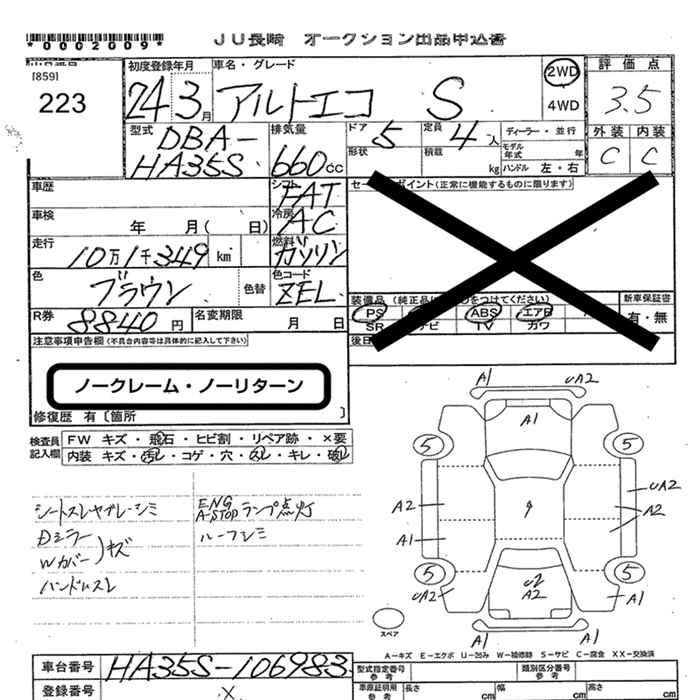 *0002009*
JU長崎 オークション出品申込書
[859]
223
初度登録年月
24 3月
車名・グレード
アルトエコ S
2WD
4WD
評価点
3.5
外装 内装
C C
型式
DBA-
HA35S
排気量
660cc
ドア 5
定員 4人
ディーラー・並行
形状
積載 kg
モデル年式 年
ハンドル 左・右
車歴
シフト
FAT
冷房
AC
車検
年 月( 日)
走行
10万1千349 km
燃料
ガソリン
色
ブラウン
色替
色コード
ZEL
R券
8840円
名変期限
月 日
セールスポイント(正常に機能するものに限ります)
装備品 (純正品に○をつけてください)
新車保証書
有・無
PS ABS エアB
SR ナビ TV カワ
後日
注意事項申告欄(不具合内容等は具体的に記入して下さい)
ノークレーム・ノーリターン
修復歴 有〔箇所 〕
検査員記入欄
FW キズ・飛石・ヒビ割・リペア跡・×要
内装 キズ・汚れ・コゲ・穴・スレ・キレ・破れ
シートスレヤブレーシミ
Dミラー
Wカバー)キズ
ハンドルスレ
ENG
A-STOP ランプ点灯
ルーフシミ
A1 UA2
A1
5 5
A2 UA2
A2
A1
9
5 5
UA2 A1
U2
A2
A1 A1
スペア
A-キズ E-エクボ U-凹み W-補修跡 S-サビ C-腐食 XX-交換済
車台番号
HA35S-106983
登録番号
×
型式指定番号
参考
類別区分番号
参考
車庫証明用
参考
長さ cm
幅 cm
高さ cm